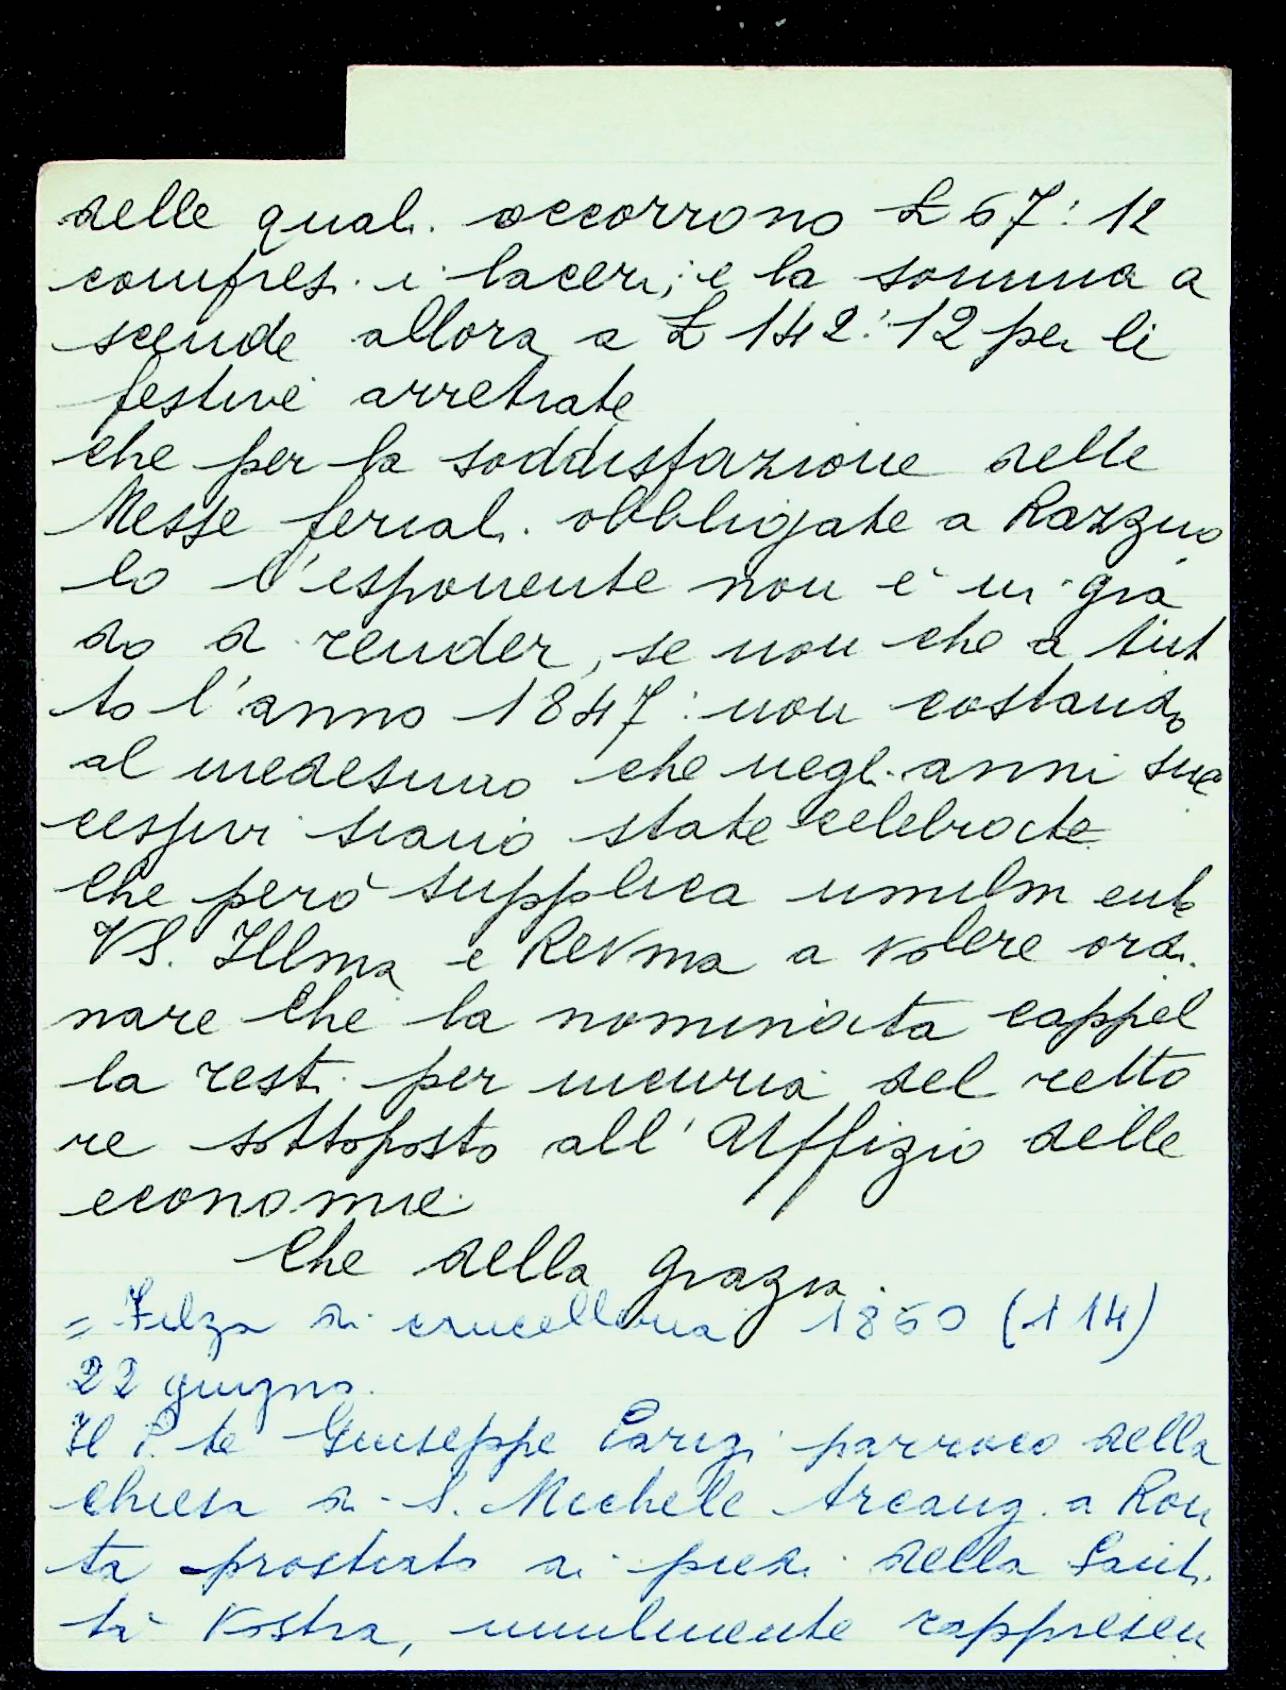 delle quali occorrono £ 67:12
compresi i laceri; e la somma a
scende allora a £ 142:12 per li
festive arretrate
che per la soddisfazione delle
Messe feriali obbligate a Razzuo
lo l'esponente non è in gra
do di render, se non che a tut
to l'anno 1847: non costando
al medesimo che negli anni suc
cessivi siano state celebrate
Che però supplica umilmente
VS. Illma e Revma a volere ordi
nare che la nominata cappel
la resti per incuria del retto
re sottoposto all'Uffizio delle
economie.
Che della grazia.
= Filza di cancelleria 1850 (114)
22 giugno.
Il P. te Giuseppe Parigi parroco della
chiesa di S. Michele Arcang. a Ron
ta prostrato ai piedi della Santi
tà Vostra, umilmente rappresen